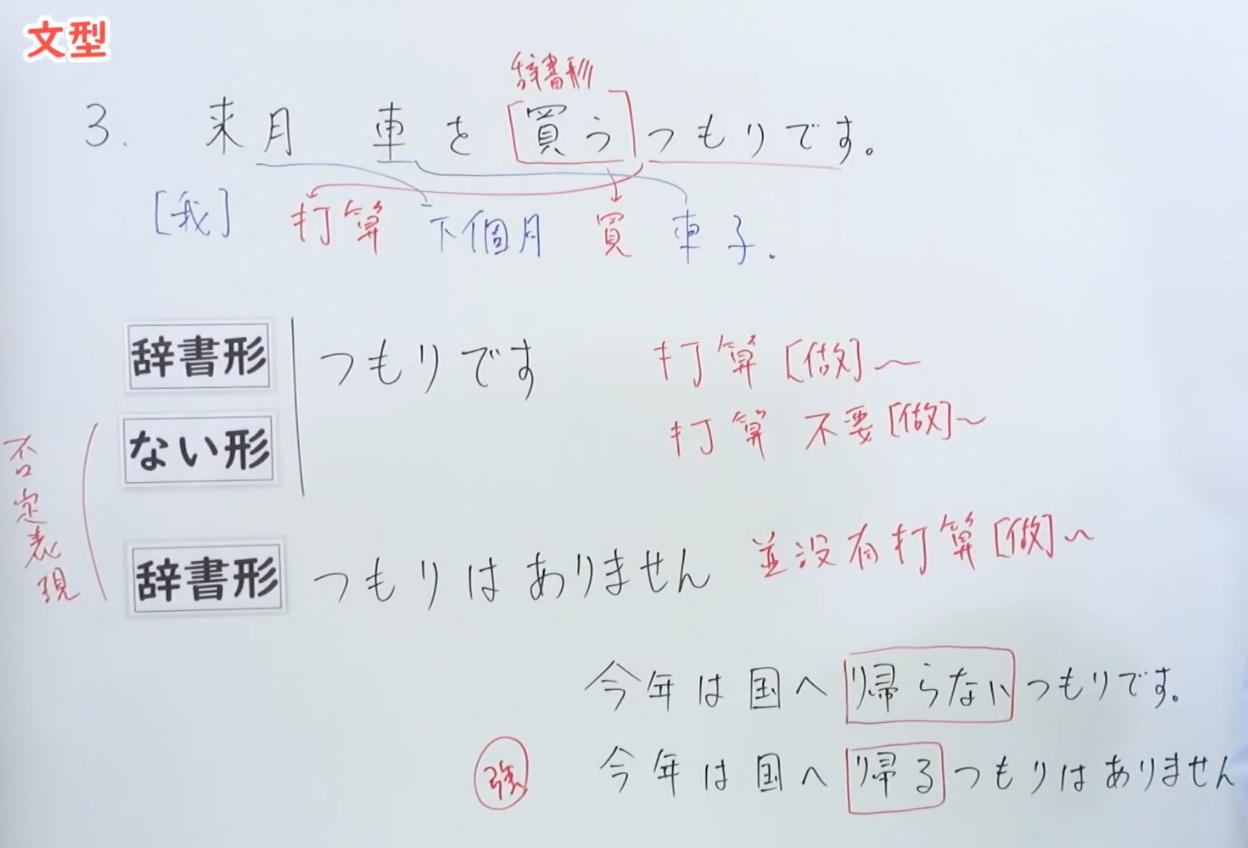 文型
辞書形
3. 来月 車を買うつもりです。
[我] 打算 下個月 買 車子.
辞書形 つもりです 打算[做]~
ない形 打算 不要[做]~
否定表現
辞書形 つもりはありません 並没有打算[做]~
今年は国へ帰らないつもりです。
強 今年は国へ帰るつもりはありません